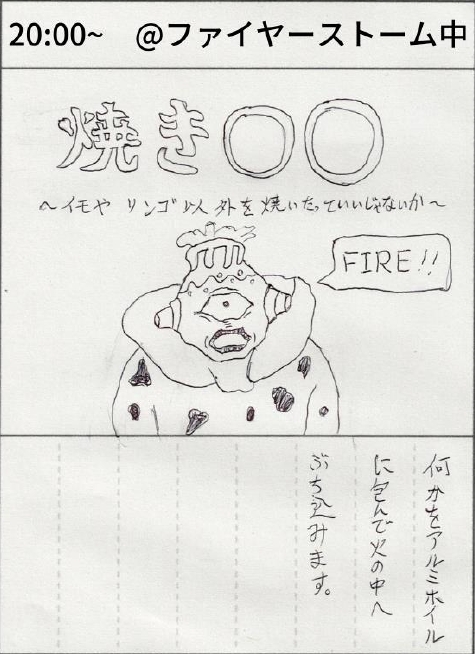 20:00~　@ファイヤーストーム中
焼き〇〇
～イモや リンゴ以外を焼いたっていいじゃないか～
FIRE!!
何かをアルミホイル
に包んで火の中へ
ぶち込みます。